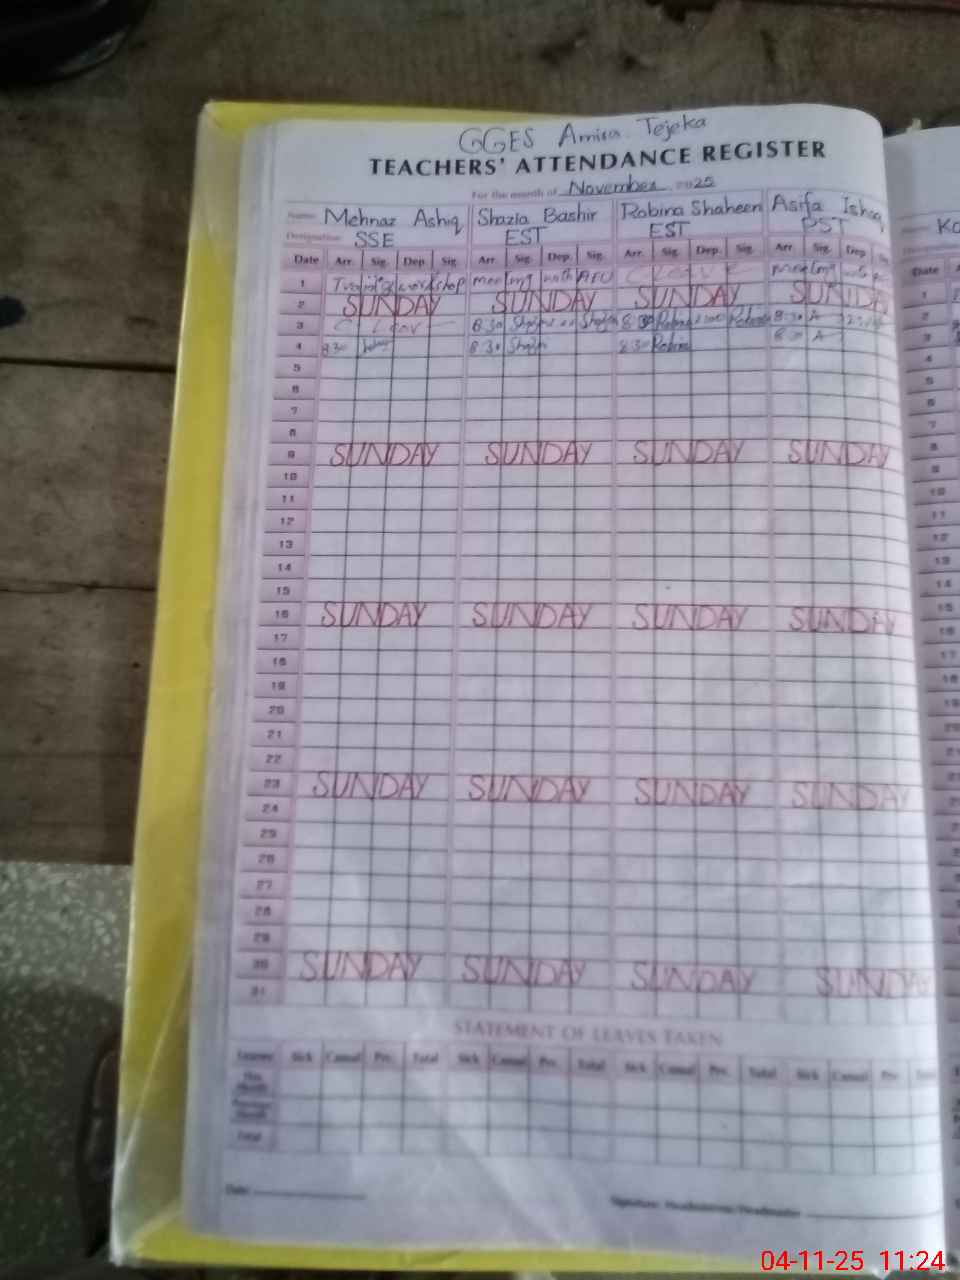 GGES Amira Tejeka
TEACHERS' ATTENDANCE REGISTER
For the month of November 2025
Name: Mehnaz Ashiq Shazia Bashir Robina Shaheen Asifa Ishaq
Designation: SSE EST EST PST
Date Arr. Sig. Dep. Sig. Arr. Sig. Dep. Sig. Arr. Sig. Dep. Sig. Arr. Sig. Dep. Date
1 workshop meeting with AEO C Leave meeting with 1
2 SUNDAY SUNDAY SUNDAY SUNDAY 2
3 C Leav 8:30 8:30 Robina 8:30 A 3
4 8:30 8:30 8:30 Robina 8:30 A 4
5 5
6 6
7 7
8 8
9 SUNDAY SUNDAY SUNDAY SUNDAY 9
10 10
11 11
12 12
13 13
14 14
15 15
16 SUNDAY SUNDAY SUNDAY SUNDAY 16
17 17
18 18
19
20
21
22
23 SUNDAY SUNDAY SUNDAY SUNDAY
24
25
26
27
28
29
30 SUNDAY SUNDAY SUNDAY SUNDAY
31
STATEMENT OF LEAVES TAKEN
Leaves Sick Casual Prv. Total Sick Casual Prv. Total Sick Casual Prv. Total Sick Casual Prv.
This Month
Previous Month
Total
Date:
Signature: Headmistress/Headmaster
04-11-25 11:24